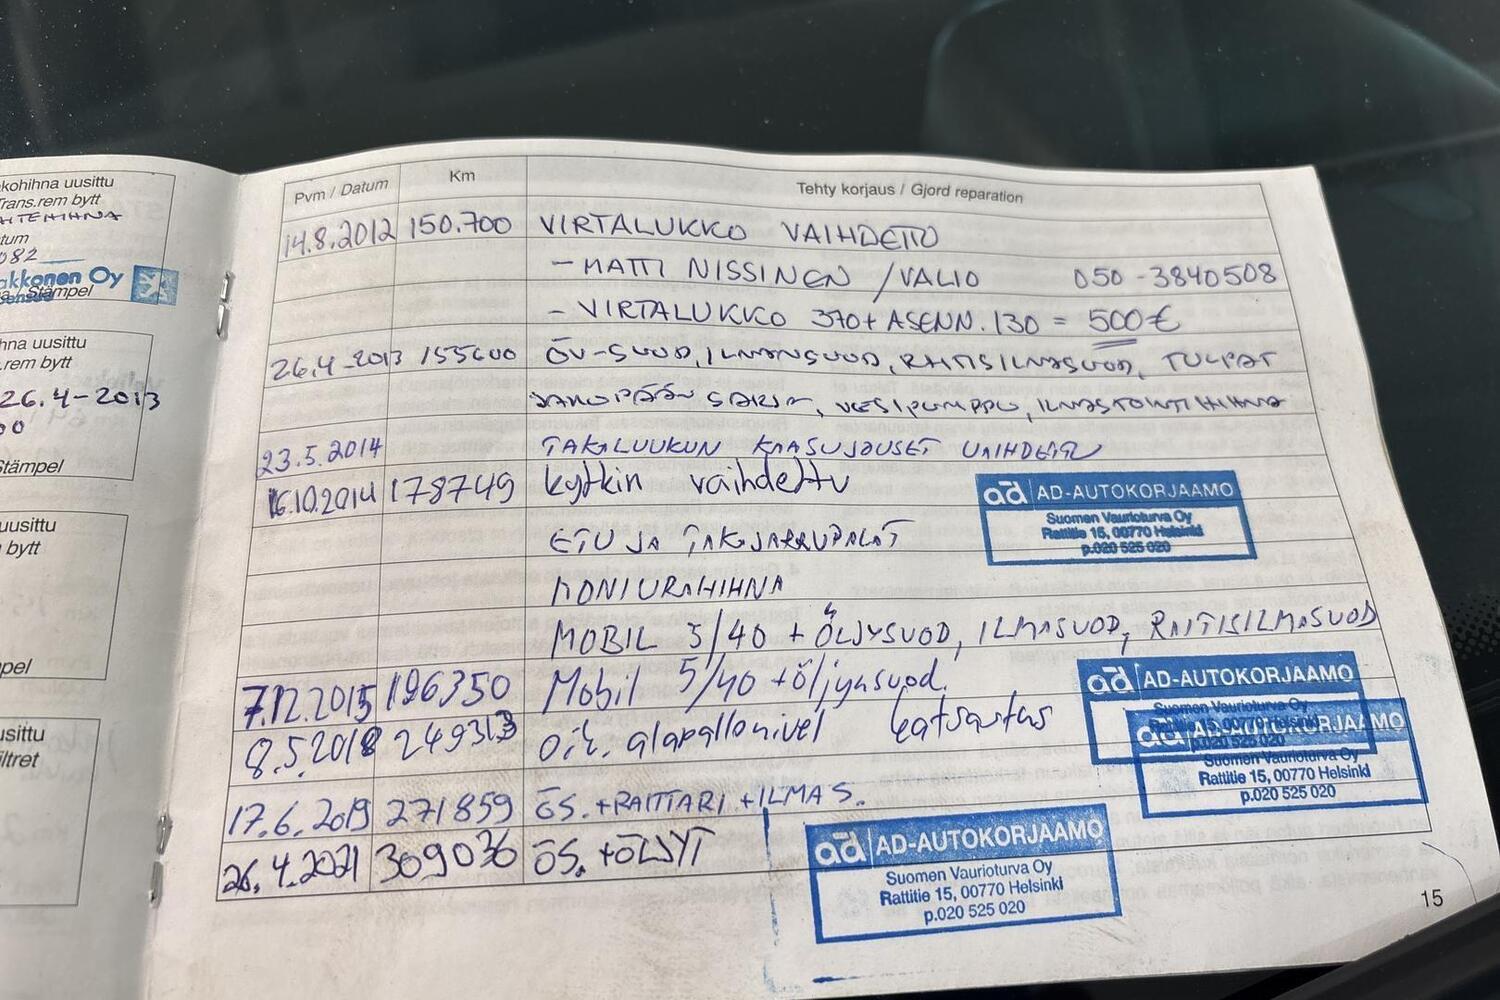 kohihna uusittu
Trans.rem bytt
tum
082
akkonen Oy
Stämpel
hna uusittu
.rem bytt
26.4-2013
00
Stämpel
uusittu
bytt
pel
usittu
iltret
Pvm / Datum Km Tehty korjaus / Gjord reparation
14.8.2012 150.700 VIRTALUKKO VAIHDETTO
- MATTI NISSINEN / VALIO 050 - 3840508
- VIRTALUKKO 370 + ASENN. 130 = 500 €
26.4-2013 155600 ÖV-SUOD, ILMANSUOD, RAITISILMASUOD, TULPAT
JAKOPÄÄN SARJA, VESIPUMPPU, ILMASTOINTIHIHNA
23.5.2014 TAKALUUKUN KAASUJOUSET VAIHDETTU
16.10.2014 178749 kytkin vaihdettu
ETU JA TAKAJARRUPALAT
MONIURAHIHNA
MOBIL 5/40 + ÖLJYSUOD, ILMASUOD, RAITISILMASUOD
7.12.2015 196350 Mobil 5/40 + öljynsuod.
8.5.2018 249313 oik. alapallonivel katsastus
17.6.2019 271859 ÖS. + RAITTARI + ILMA S.
26.4.2021 309036 ÖS. + ÖLJYT
ad AD-AUTOKORJAAMO
Suomen Vaurioturva Oy
Rattitie 15, 00770 Helsinki
p.020 525 020
ad AD-AUTOKORJAAMO
Suomen Vaurioturva Oy
15, 00770 Helsinki
p.020 525 020
ad AD-AUTOKORJAAMO
Suomen Vaurioturva Oy
Rattitie 15, 00770 Helsinki
p.020 525 020
ad AD-AUTOKORJAAMO
Suomen Vaurioturva Oy
Rattitie 15, 00770 Helsinki
p.020 525 020
15